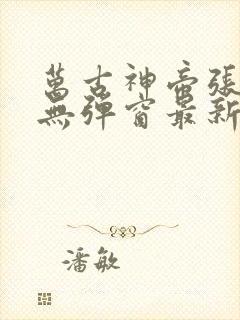 萬古神帝張
無彈窗最新
潘敏